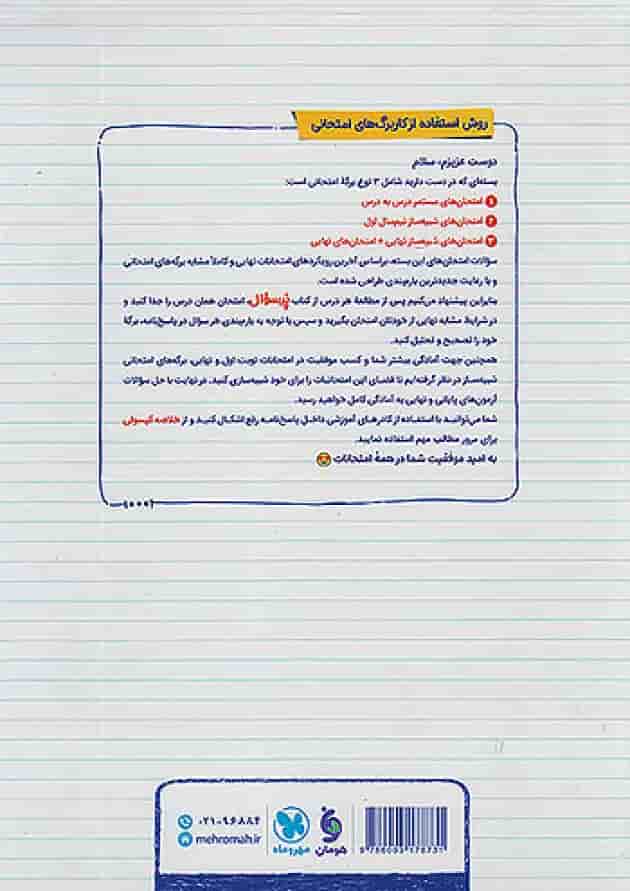 روش استفاده از کاربرگ‌های امتحانی
دوست عزیزم، سلام
بسته‌ای که در دست دارید شامل ۳ نوع برگهٔ امتحانی است:
۱ امتحان‌های مستمر درس به درس
۲ امتحان‌های شبیه‌ساز نیم‌سال اول
۳ امتحان‌های شبیه‌ساز نهایی + امتحان‌های نهایی
سؤالات امتحان‌های این بسته، براساس آخرین رویکردهای امتحانات نهایی و کاملاً مشابه برگه‌های امتحانی
و با رعایت جدیدترین بارم‌بندی طراحی شده است.
بنابراین پیشنهاد می‌کنیم پس از مطالعهٔ هر درس از کتاب پُرسؤال، امتحان همان درس را جدا کنید و
در شرایط مشابه نهایی از خودتان امتحان بگیرید و سپس با توجه به بارم‌بندی هر سؤال در پاسخ‌نامه، برگهٔ
خود را تصحیح و تحلیل کنید.
همچنین جهت آمادگی بیشتر شما و کسب موفقیت در امتحانات نوبت اول و نهایی، برگه‌های امتحانی
شبیه‌ساز در نظر گرفته‌ایم تا فضای این امتحانات را برای خود شبیه‌سازی کنید. در نهایت با حل سؤالات
آزمون‌های پایانی و نهایی به آمادگی کامل خواهید رسید.
شما می‌توانید با استفاده از کادرهای آموزشی داخل پاسخ‌نامه رفع اشکال کنید و از خلاصه کپسولی
برای مرور مطالب مهم استفاده نمایید.
به امید موفقیت شما در همهٔ امتحانات
۰۲۱-۹۶۸۸۴
mehromah.ir
مهروماه
شومان